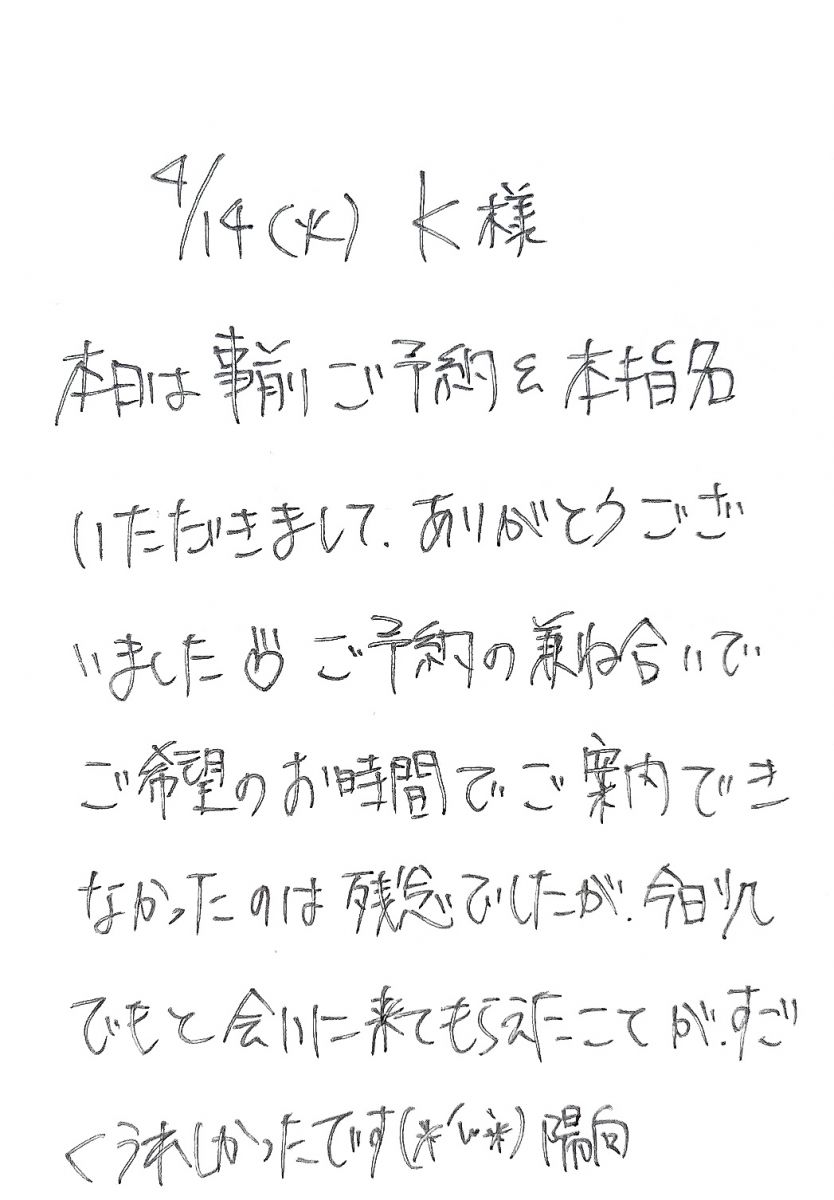 4/14(火) K様
本日は事前ご予約&本指名
いただきまして、ありがとうござ
いました ご予約の兼ね合いで
ご希望のお時間でご案内でき
なかったのは残念でしたが、今日少し
でもと会いに来てもらえたことが、すご
くうれしかったです(*´`*) 陽向